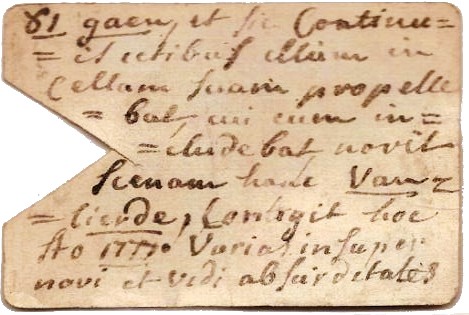 81 gaen, et sic Continu=
= is ictibus illum in
Cellam suam propelle
= bat, ubi eum in=
= cludebat novit
Scenam hanc Van=
= lierde, Contigit hoc
Ao 1777. Varias insuper
novi et vidi absurditates